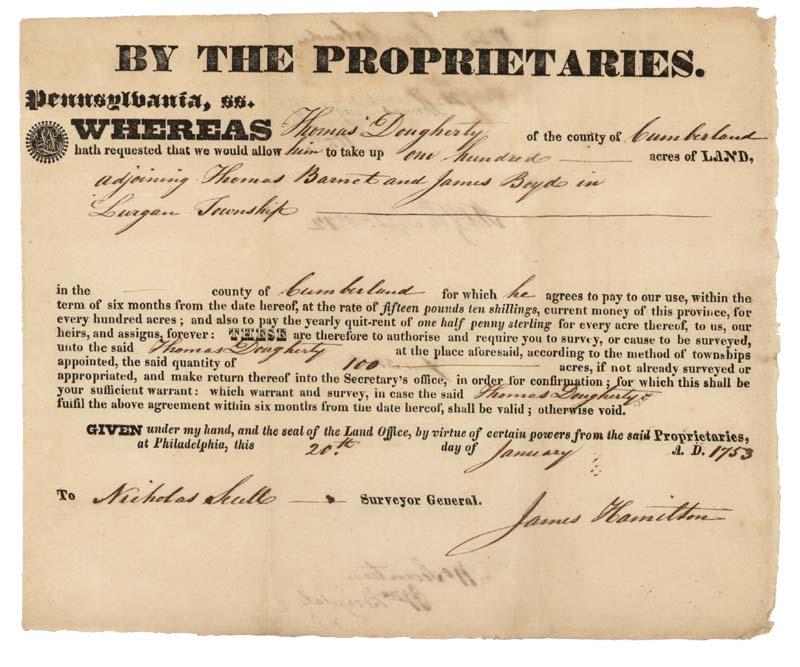 BY THE PROPRIETARIES.
Pennsylvania, ss.
WHEREAS Thomas Dougherty of the county of Cumberland
hath requested that we would allow him to take up one hundred acres of LAND,
adjoining Thomas Barnet and James Boyd in
Lurgan Township
in the county of Cumberland for which he agrees to pay to our use, within the
term of six months from the date hereof, at the rate of fifteen pounds ten shillings, current money of this province, for
every hundred acres; and also to pay the yearly quit-rent of one half penny sterling for every acre thereof, to us, our
heirs, and assigns, forever: THESE are therefore to authorise and require you to survey, or cause to be surveyed,
unto the said Thomas Dougherty at the place aforesaid, according to the method of townships
appointed, the said quantity of 100 acres, if not already surveyed or
appropriated, and make return thereof into the Secretary's office, in order for confirmation; for which this shall be
your sufficient warrant: which warrant and survey, in case the said Thomas Dougherty
fulfil the above agreement within six months from the date hereof, shall be valid; otherwise void.
GIVEN under my hand, and the seal of the Land Office, by virtue of certain powers from the said Proprietaries,
at Philadelphia, this 20th day of January A. D. 1753
To Nicholas Scull Surveyor General.
James Hamilton